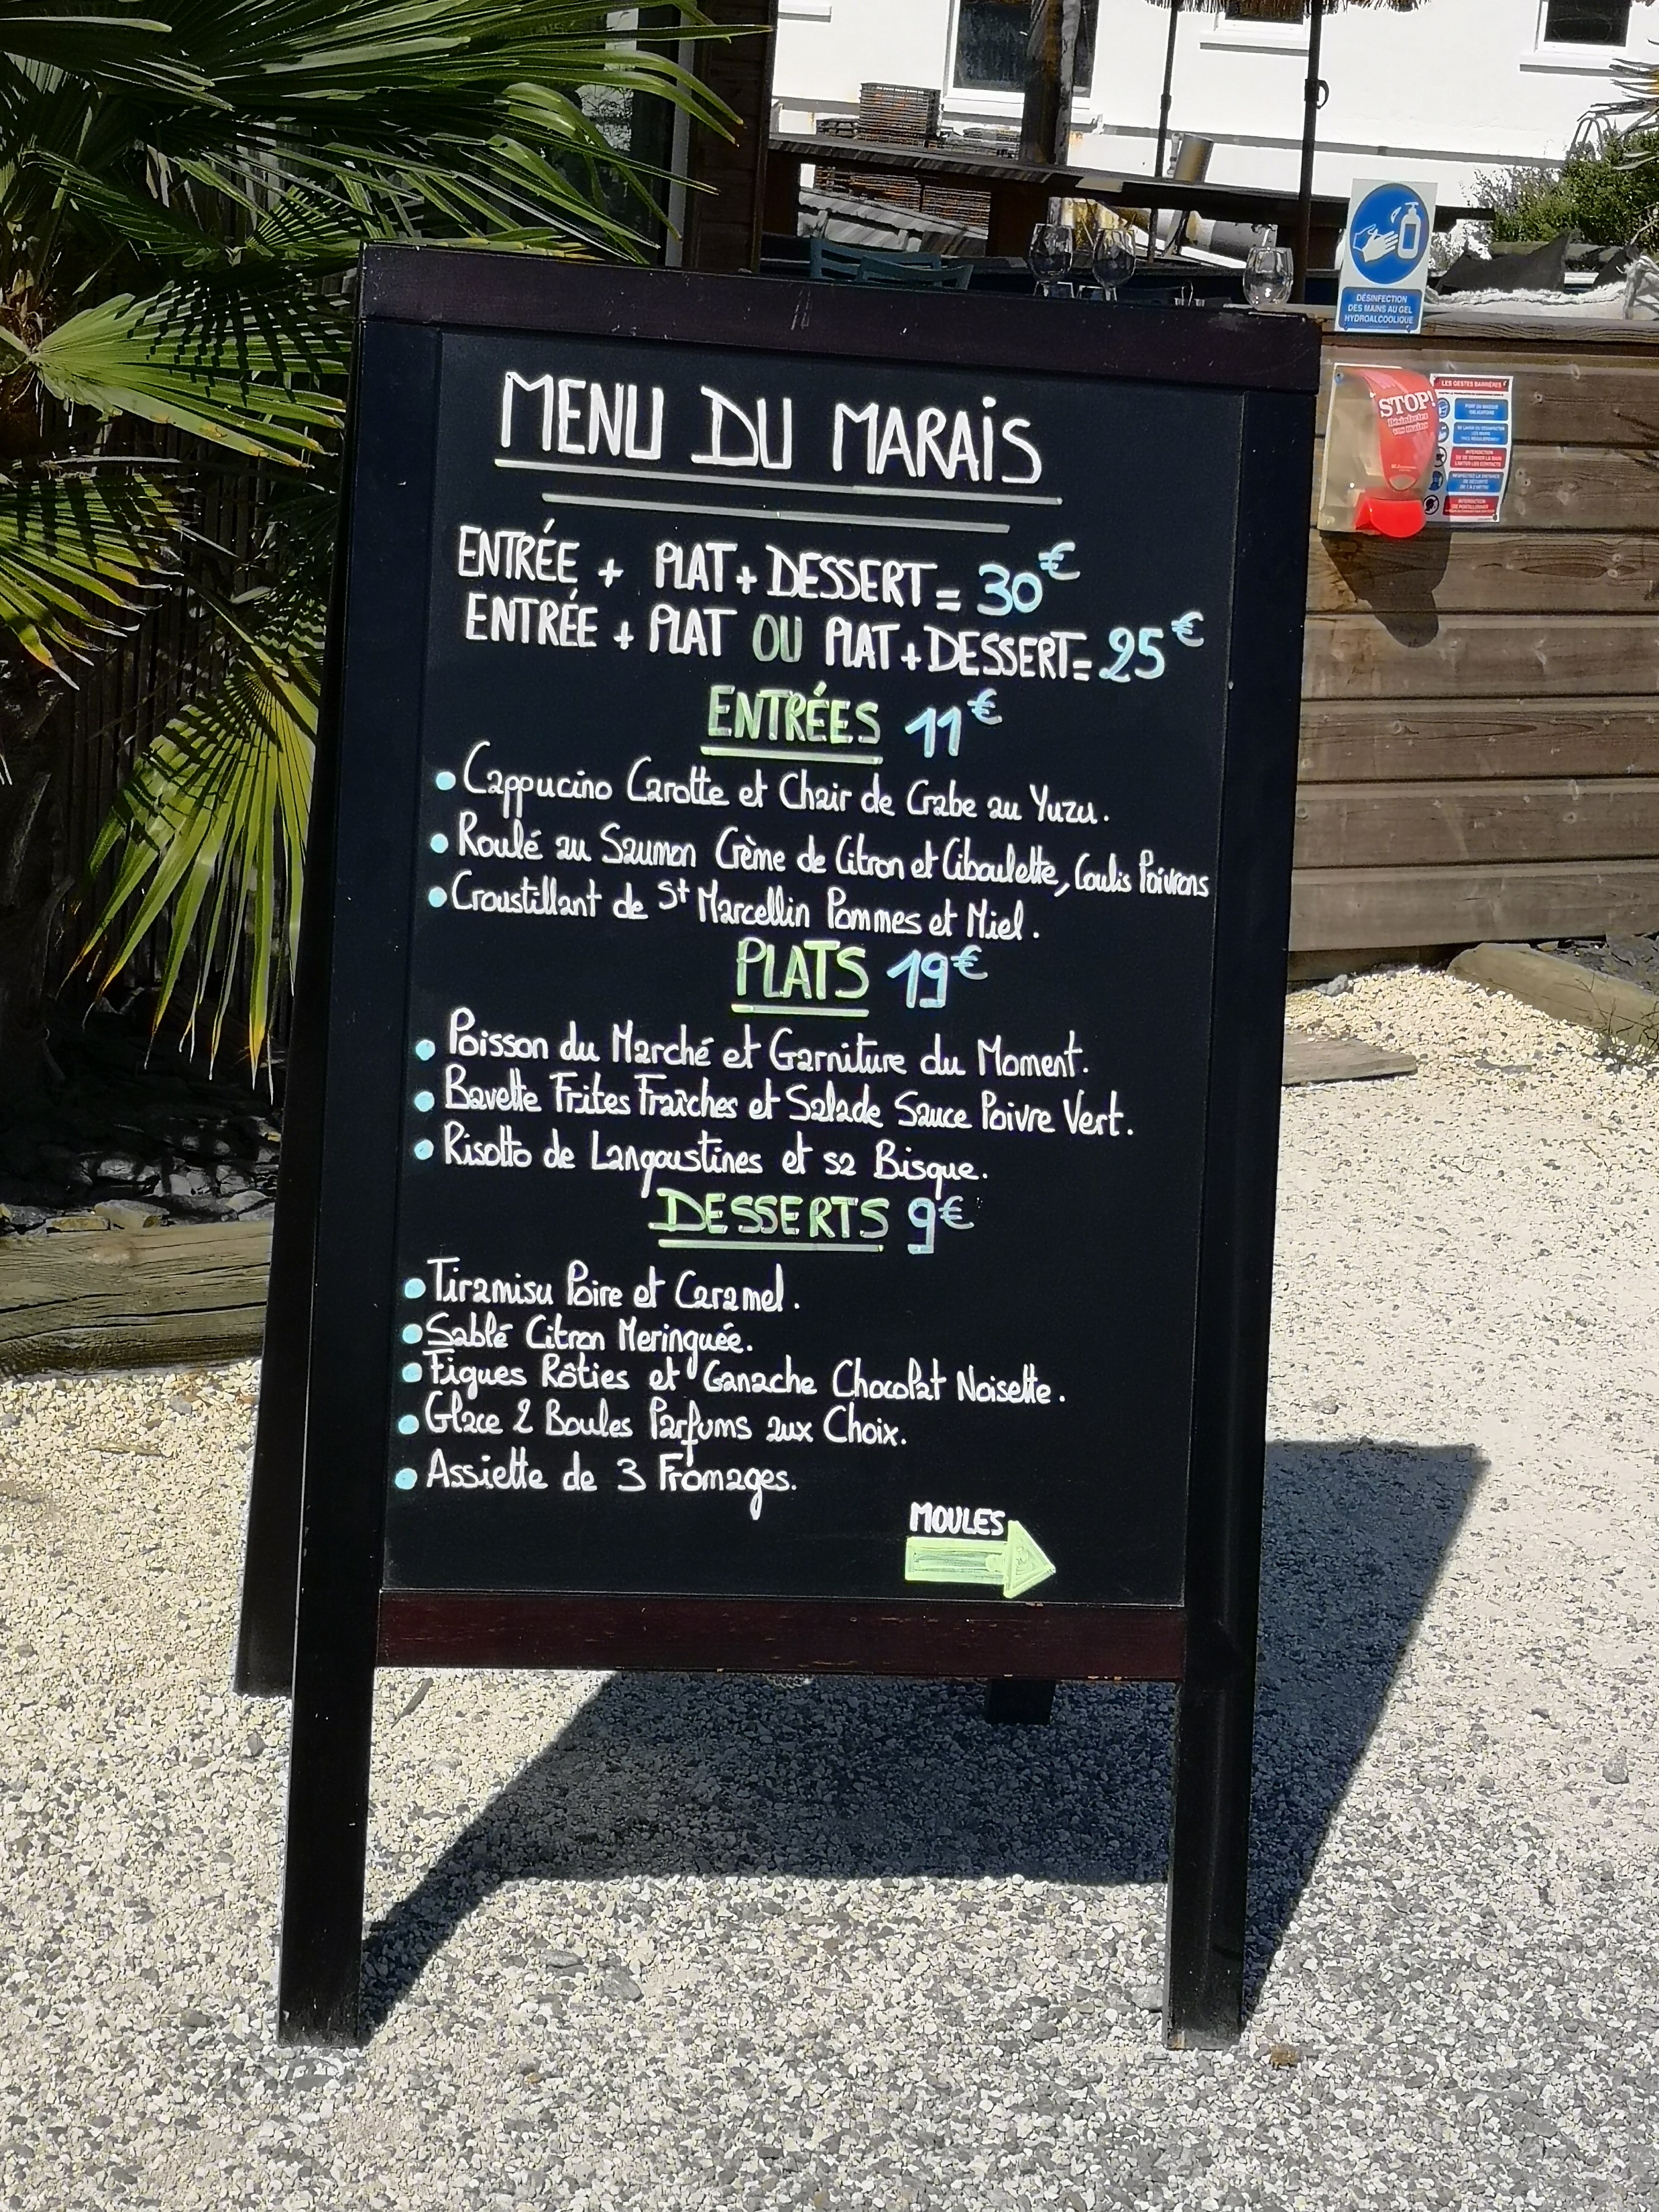 MENU DU MARAIS
ENTRÉE + PLAT + DESSERT = 30€
ENTRÉE + PLAT OU PLAT + DESSERT = 25€
ENTRÉES 11€
• Cappucino Carotte et Chair de Crabe au Yuzu.
• Roulé au Saumon Crème de Citron et Ciboulette, Coulis Poivrons
• Croustillant de St Marcellin Pommes et Miel.
PLATS 19€
• Poisson du Marché et Garniture du Moment.
• Bavette Frites Fraîches et Salade Sauce Poivre Vert.
• Risotto de Langoustines et sa Bisque.
DESSERTS 9€
• Tiramisu Poire et Caramel.
• Sablé Citron Meringuée.
• Figues Rôties et Ganache Chocolat Noisette.
• Glace 2 Boules Parfums aux Choix.
• Assiette de 3 Fromages.
MOULES
DÉSINFECTION
DES MAINS AU GEL
HYDROALCOOLIQUE
STOP!
Désinfectez
vos mains
LES GESTES BARRIÈRES
PORT DU MASQUE
OBLIGATOIRE